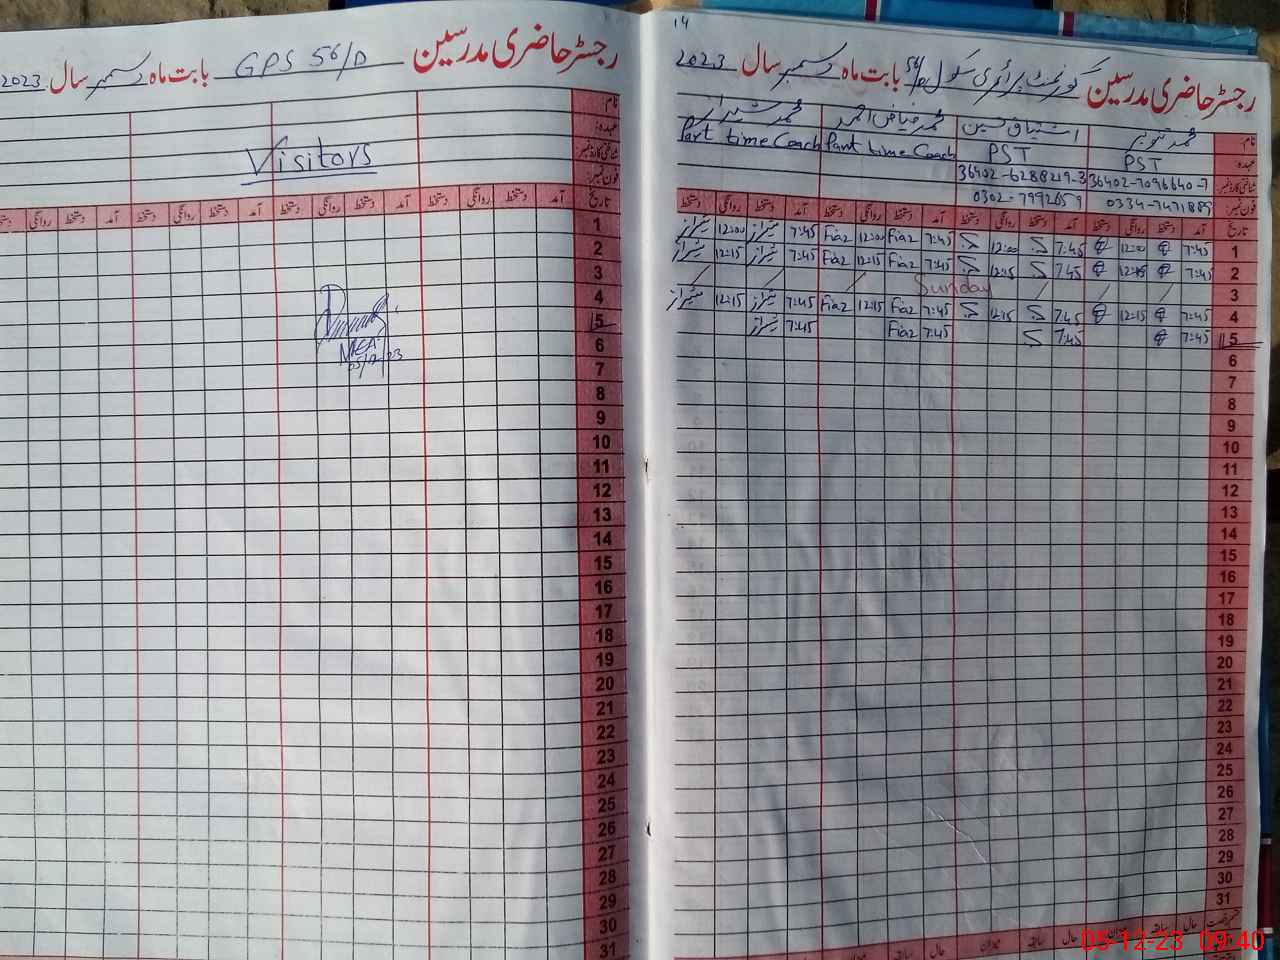 رجسٹر حاضری مدرسین GPS 56/D بابت ماہ دسمبر سال 2023
نام:
عہدہ:
شناختی کارڈ نمبر:
فون نمبر:
Visitors
تاریخ آمد دستخط روانگی دستخط آمد دستخط روانگی دستخط آمد دستخط روانگی دستخط آمد دستخط روانگی دستخط
1
2
3
4
5
6
7
8
9
10
11
12
13
14
15
16
17
18
19
20
21
22
23
24
25
26
27
28
29
30
31
MEA
05/12/23
14
رجسٹر حاضری مدرسین گورنمنٹ پرائمری سکول 56/D بابت ماہ دسمبر سال 2023
نام: محمد تنویر اشتیاق حسین محمد فیاض احمد محمد شیراز
عہدہ: PST PST Part time Coach Part time Coach
شناختی کارڈ نمبر: 36402-7096640-7 36402-6288219-3
فون نمبر: 0334-7471889 0302-7992659
تاریخ آمد دستخط روانگی دستخط آمد دستخط روانگی دستخط آمد دستخط روانگی دستخط آمد دستخط روانگی دستخط
1 7:45 12:00 7:45 12:00 7:45 Fiaz 12:00 Fiaz 7:45 شیراز 12:00 شیراز
2 7:45 12:15 7:45 12:15 7:45 Fiaz 12:15 Fiaz 7:45 شیراز 12:15 شیراز
3 Sunday
4 7:45 12:15 7:45 12:15 7:45 Fiaz 12:15 Fiaz 7:45 شیراز 12:15 شیراز
5 7:45 7:45 7:45 Fiaz 7:45 شیراز
6
7
8
9
10
11
12
13
14
15
16
17
18
19
20
21
22
23
24
25
26
27
28
29
30
31
حال سابقہ میزان حال سابقہ میزان حال
05-12-23 09:40